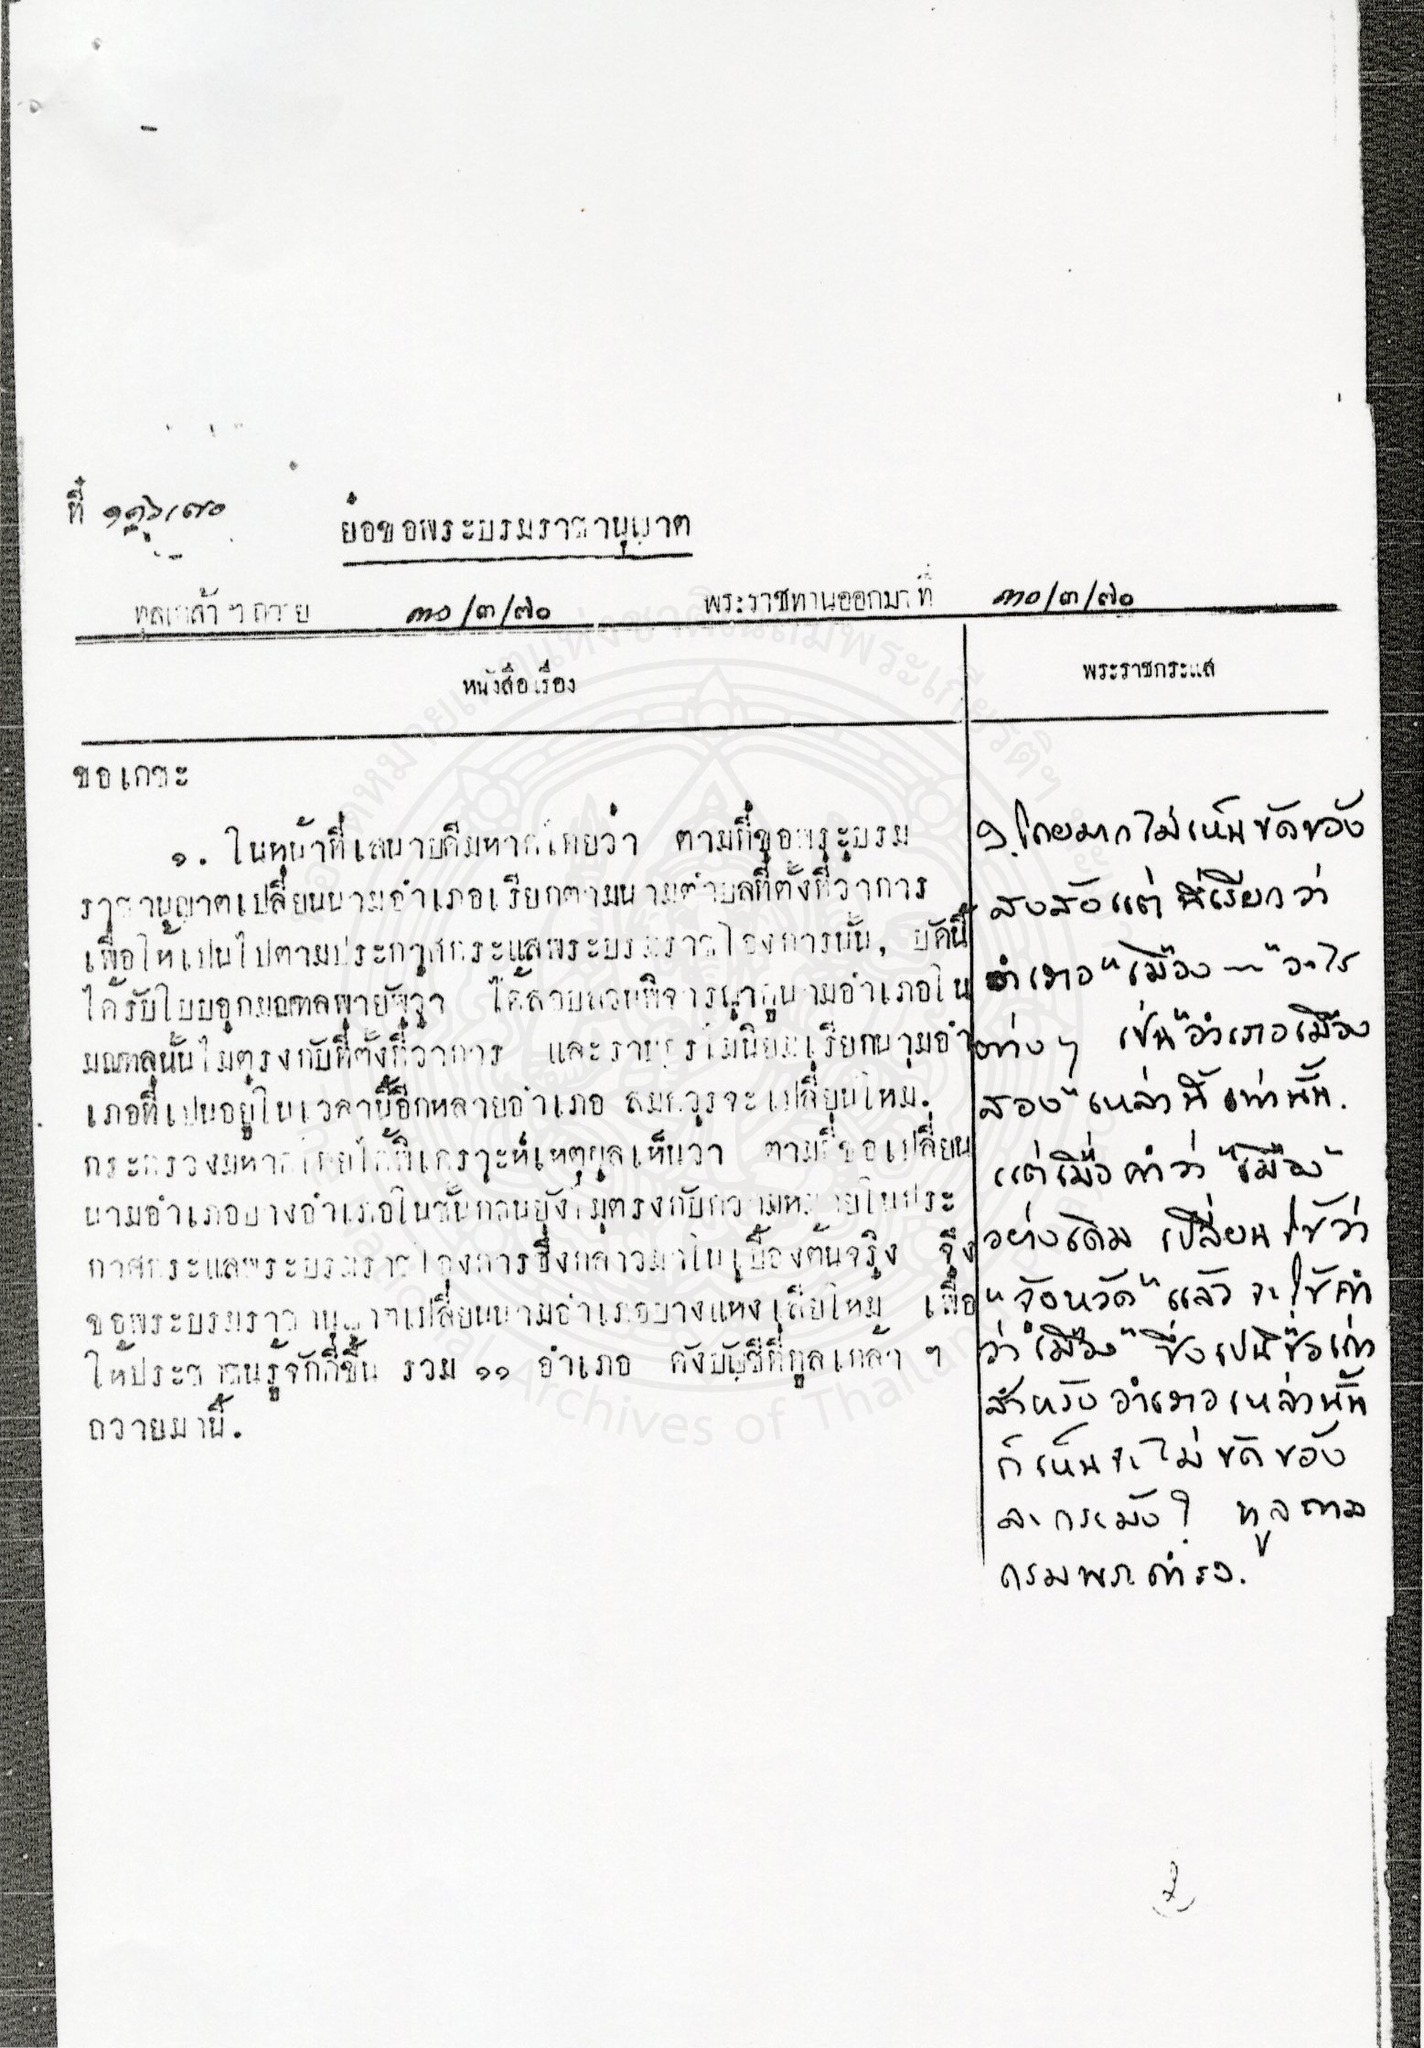 ที่ ๑๘๖/๗๐
ย่อขอพระบรมราชานุญาต
ทูลเกล้า ฯ ถวาย ๓๐/๓/๗๐ พระราชทานออกมาที่ ๓๐/๓/๗๐
หนังสือเรื่อง
พระราชกระแส
ขอเดชะ
๑. ในหน้าที่เสนาบดีมหาดไทยว่า ตามที่ขอพระบรม
ราชานุญาตเปลี่ยนนามอำเภอเรียกตามนามตำบลที่ตั้งที่ว่าการ
เพื่อให้เปนไปตามประกาศกระแสพระบรมราชโองการนั้น, บัดนี้
ได้รับใบบอกมณฑลพายัพว่า ได้สอบสวนพิจารณาดูนามอำเภอใน
มณฑลนั้นไม่ตรงกับที่ตั้งที่ว่าการ และราษฎรไม่นิยมเรียกนามอำ
เภอที่เปนอยู่ในเวลานี้อีกหลายอำเภอ สมควรจะเปลี่ยนใหม่.
กระทรวงมหาดไทยได้วิเคราะห์เหตุผลเห็นว่า ตามที่ขอเปลี่ยน
นามอำเภอบางอำเภอในชั้นก่อนยังไม่ตรงกับความหมายในประ
กาศกระแสพระบรมราชโองการซึ่งกล่าวมาในเบื้องต้นจริง จึง
ขอพระบรมราชานุญาตเปลี่ยนนามอำเภอบางแห่งเสียใหม่ เพื่อ
ให้ประชาชนรู้จักดีขึ้น รวม ๑๑ อำเภอ ดังบัญชีที่ทูลเกล้า ฯ
ถวายมานี้.
๑. โดยมากไม่เห็นขัดข้อง
สงสัยแต่ที่เรียกว่า
อำเภอ "เมือง —" อะไร
ต่างๆ เช่น "อำเภอเมือง
สอง" เหล่านี้เท่านั้น.
แต่เมื่อคำว่า "เมือง"
อย่างเดิม เปลี่ยนใช้ว่า
"จังหวัด" แล้ว จะใช้คำ
ว่า "เมือง" ซึ่งเปนชื่อเก่า
สำหรับอำเภอเหล่านั้น
ก็เห็นจะไม่ขัดข้อง
ละกระมัง? ทูลถาม
กรมพระดำรง.